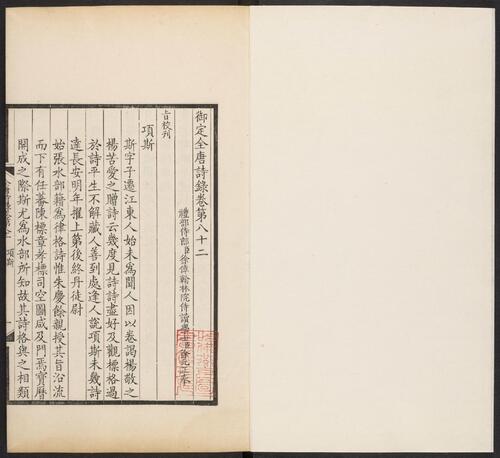 御定全唐詩錄卷第八十二
禮部侍郎臣徐倬翰林院侍讀學士臣徐元正奉
旨校刊
項斯
斯字子遷江東人始未爲聞人因以卷謁楊敬之
楊苦愛之贈詩云幾度見詩詩盡好及觀標格過
於詩平生不解藏人善到處逢人說項斯未幾詩
達長安明年擢上第後終丹徒尉
始張水部籍爲律格詩惟朱慶餘親授其旨沿流
而下有任蕃陳標章孝標司空圖咸及門焉寶曆
開成之際斯尤爲水部所知故其詩格與之相類
項斯
一